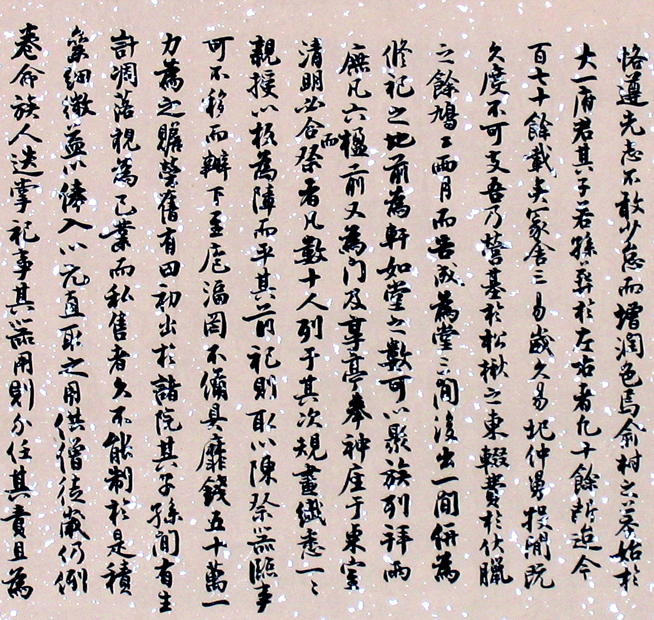 恪遵先志不敢少怠而增润色焉俞村之墓始於
大一府君其子若孫葬於左右者九十餘所迄今
百七十餘載夹冢舍三易歲久易圮仲勇投閒既
久度不可支吾乃營基於松楸之東輟費於伏臘
之餘鳩工兩月而告成為堂三間後出一間併為
修祀之地前為軒如堂之數可以聚族列拜兩
廡凡六楹前又為門及享亭奉神座于東室
清明必合祭而者凡數十人列于其次規畫纖悉一一
親授以板為障而平其前祀則取以陳祭器臨事
可不移而辦下至庖湢罔不備具靡錢五十萬一
力為之贍塋舊有田初出於諸院其子孫間有生
計凋落視為己業而私售者久不能制於是積
眾細微益以俸入以元直取之用供僧徒歲仍例
卷命族人迭掌祀事其器用則分任其責且為